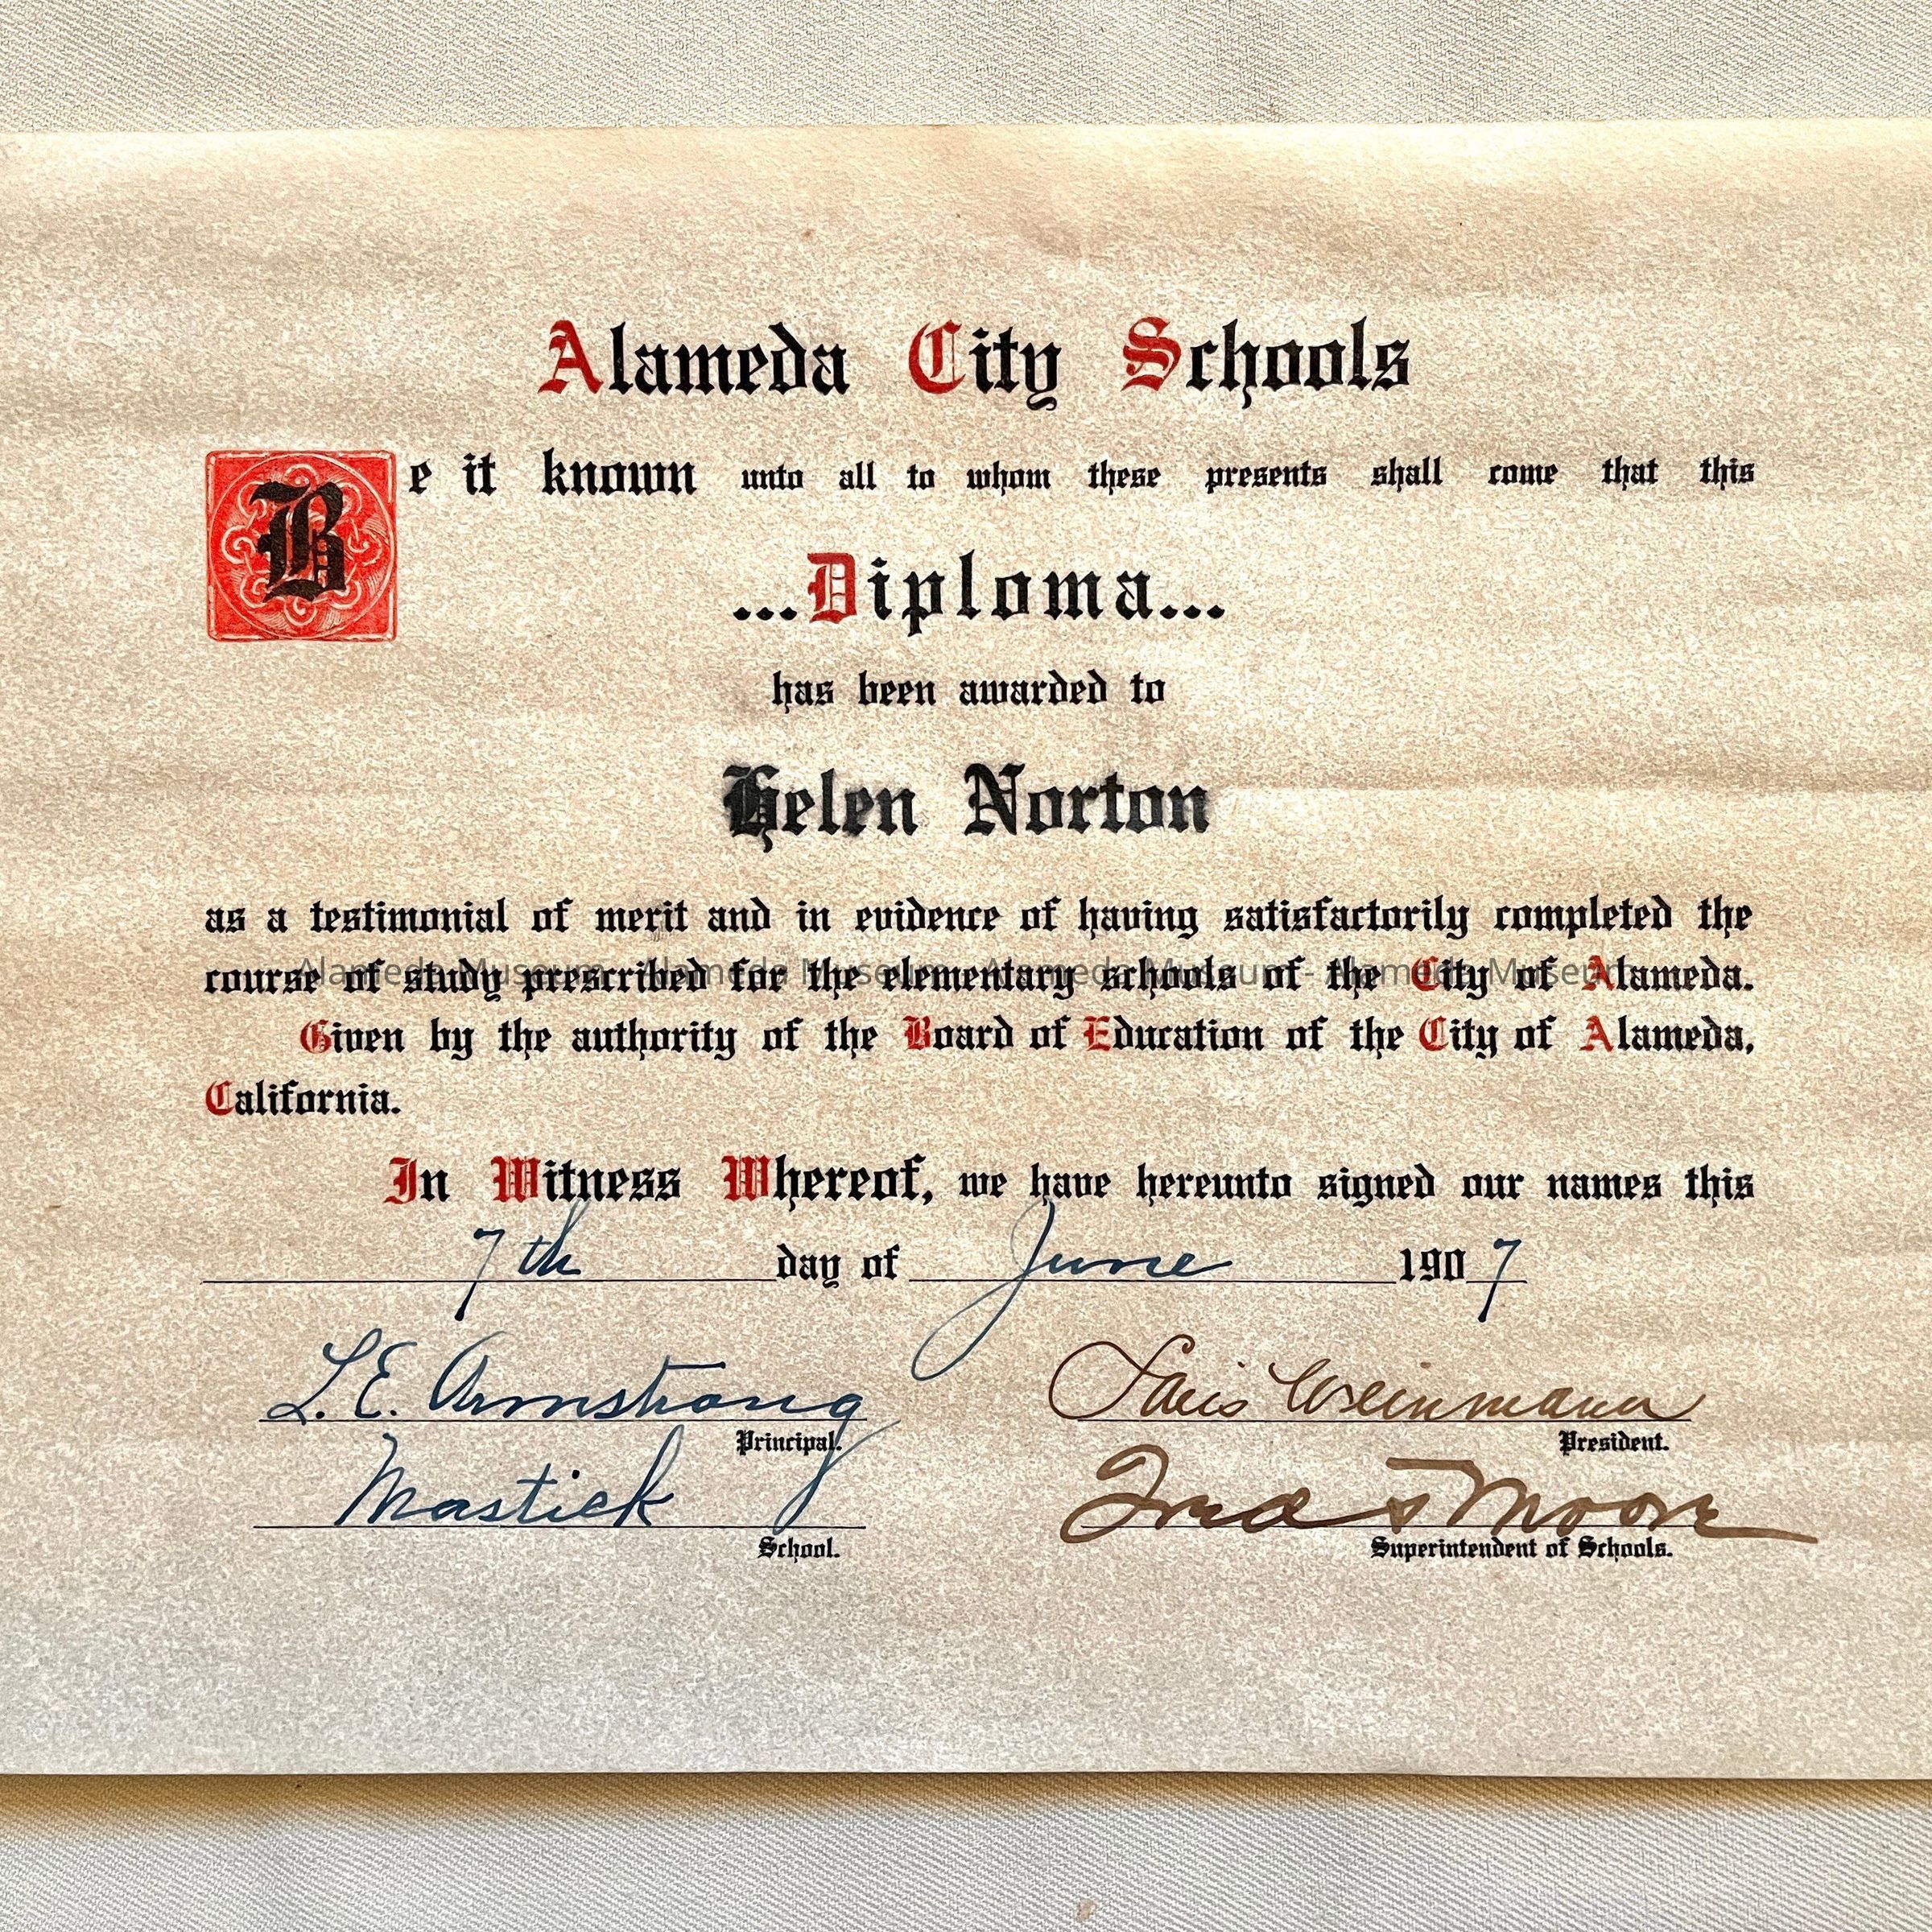 Alameda City Schools
Be it known unto all to whom these presents shall come that this
...Diploma...
has been awarded to
Helen Norton
as a testimonial of merit and in evidence of having satisfactorily completed the
course of study prescribed for the elementary schools of the City of Alameda.
Alameda Museum - Alameda Museum - Alameda Museum - Alameda Museum
Given by the authority of the Board of Education of the City of Alameda,
California.
In Witness Whereof, we have hereunto signed our names this
7th day of June 1907
L. E. Armstrong Louis Weinmann
Principal. President.
Mastick Moore
School. Superintendent of Schools.